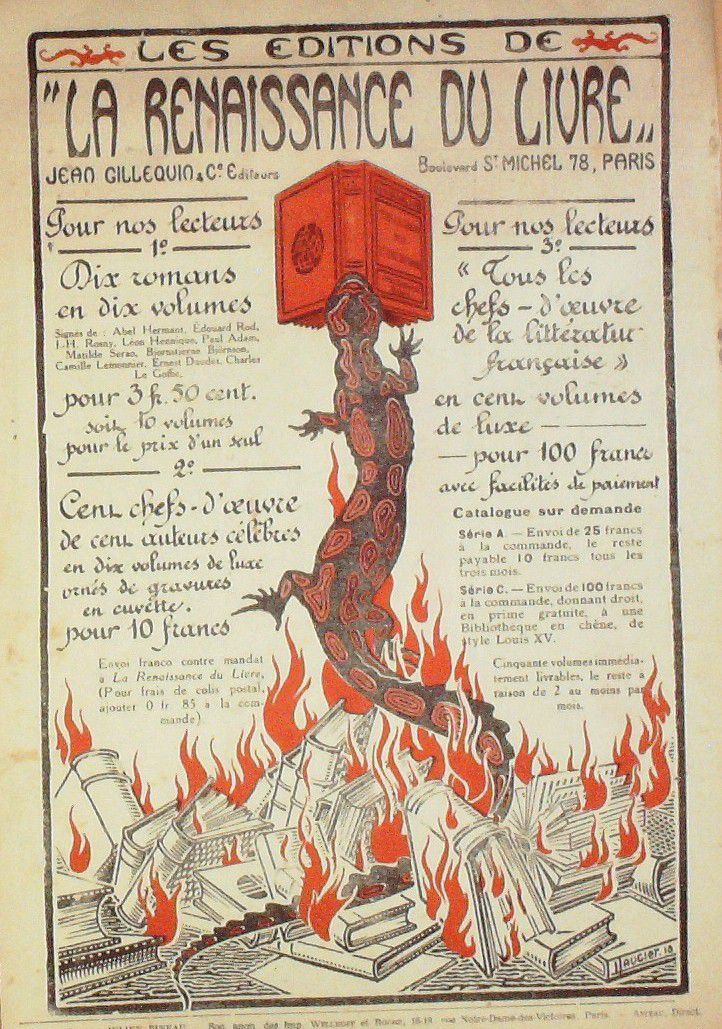 LES EDITIONS DE
"LA RENAISSANCE DU LIVRE„
JEAN GILLEQUIN & Cº Editeurs
Boulevard Sᵗ MICHEL 78, PARIS
Pour nos lecteurs
1º
Dix romans
en dix volumes
Signés de : Abel Hermant, Édouard Rod,
J.-H. Rosny, Léon Hennique, Paul Adam,
Matilde Serao, Bjornstierne Bjornson,
Camille Lemonnier, Ernest Daudet, Charles
Le Goffic.
pour 3 fr. 50 cent.
soit 10 volumes
pour le prix d'un seul
2º
Cent chefs-d'œuvre
de cent auteurs célèbres
en dix volumes de luxe
ornés de gravures
en cuvette.
pour 10 francs
Envoi franco contre mandat
à La Renaissance du Livre,
(Pour frais de colis postal,
ajouter 0 fr 85 à la com-
mande)
Pour nos lecteurs
3º
« Tous les
chefs-d'œuvre
de la littératur
française »
en cent volumes
de luxe
pour 100 francs
avec facilités de paiement
Catalogue sur demande
Série A. — Envoi de 25 francs
à la commande, le reste
payable 10 francs tous les
trois mois.
Série C. — Envoi de 100 francs
à la commande, donnant droit,
en prime gratuite, à une
Bibliothèque en chêne, de
style Louis XV.
Cinquante volumes immédia-
tement livrables, le reste à
raison de 2 au moins par
mois.
des Imp. WELLHOFF et ROCHE, 16-18, rue Notre-Dame-des-Victoires, Paris. — Direct.